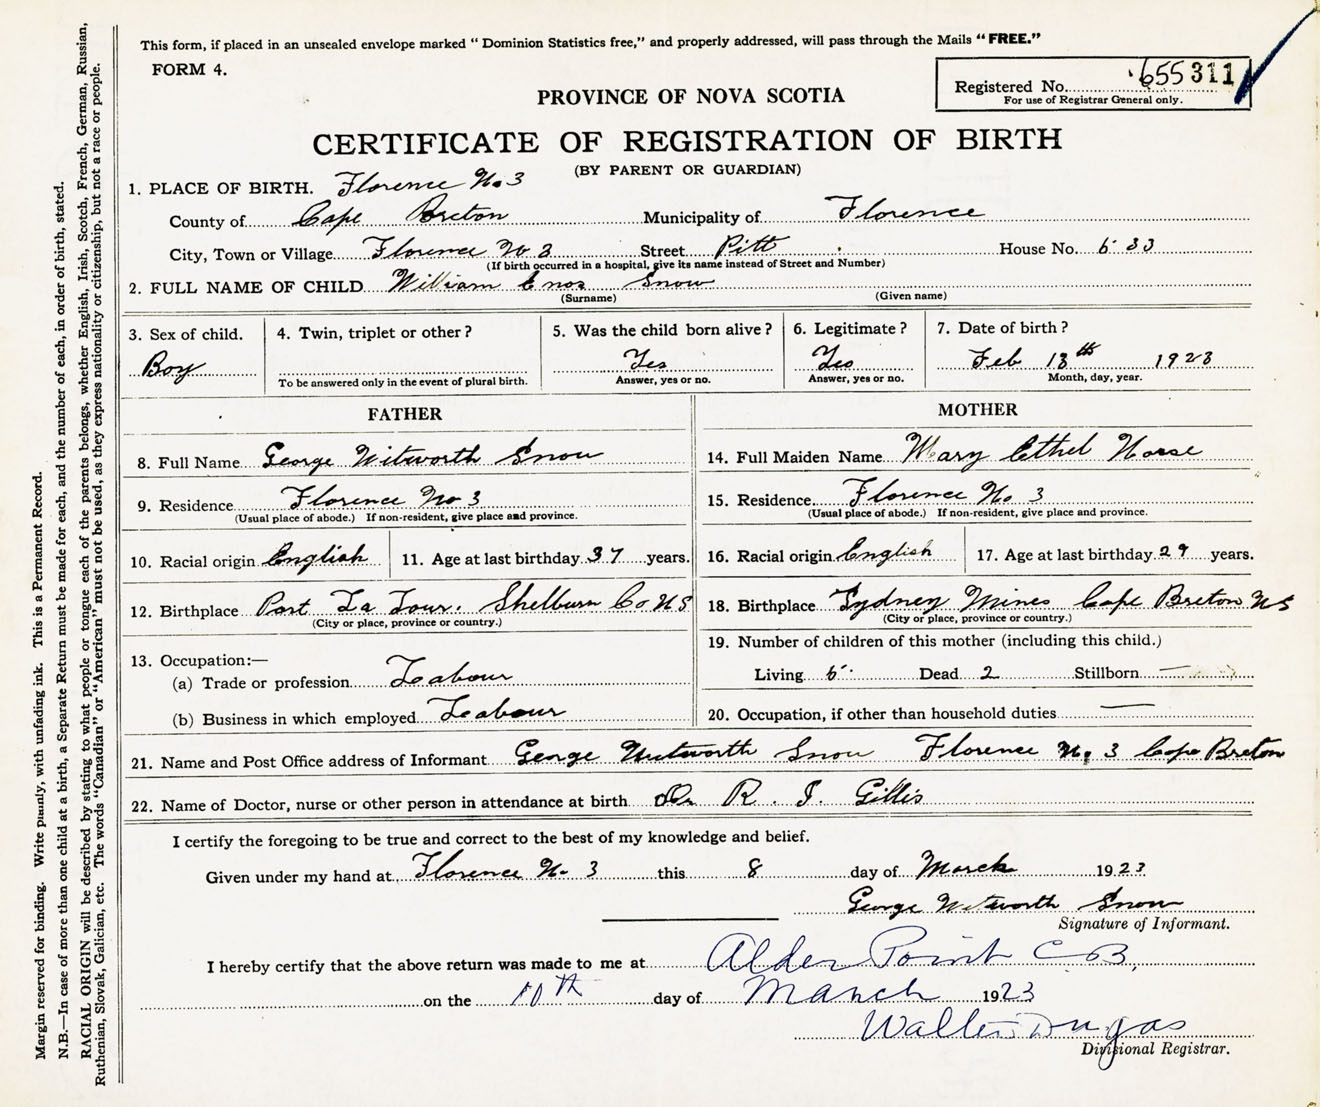 This form, if placed in an unsealed envelope marked "Dominion Statistics free," and properly addressed, will pass through the Mails "FREE."
FORM 4.
Registered No. 655 311
For use of Registrar General only.
PROVINCE OF NOVA SCOTIA
CERTIFICATE OF REGISTRATION OF BIRTH
(BY PARENT OR GUARDIAN)
1. PLACE OF BIRTH. Florence No 3
County of Cape Breton Municipality of Florence
City, Town or Village Florence No 3 Street Pitt House No. 533
(If birth occurred in a hospital, give its name instead of Street and Number)
2. FULL NAME OF CHILD William Enos Snow
(Surname) (Given name)
3. Sex of child. 4. Twin, triplet or other? 5. Was the child born alive? 6. Legitimate? 7. Date of birth?
Boy Yes Yes Feb 13th 1923
To be answered only in the event of plural birth. Answer, yes or no. Answer, yes or no. Month, day, year.
FATHER
8. Full Name George Witworth Snow
9. Residence Florence No 3
(Usual place of abode.) If non-resident, give place and province.
10. Racial origin English 11. Age at last birthday 37 years.
12. Birthplace Port La Tour. Shelburn Co N S
(City or place, province or country.)
13. Occupation:—
(a) Trade or profession Labour
(b) Business in which employed Labour
MOTHER
14. Full Maiden Name Mary Ethel
15. Residence Florence No 3
(Usual place of abode.) If non-resident, give place and province.
16. Racial origin English 17. Age at last birthday 29 years.
18. Birthplace Sydney Mines Cape Breton N S
(City or place, province or country.)
19. Number of children of this mother (including this child.)
Living 5 Dead 2 Stillborn —
20. Occupation, if other than household duties —
21. Name and Post Office address of Informant George Witworth Snow Florence No 3 Cape Breton
22. Name of Doctor, nurse or other person in attendance at birth Dr R. J. Gillis
I certify the foregoing to be true and correct to the best of my knowledge and belief.
Given under my hand at Florence No 3 this 8 day of March 1923
George Witworth Snow
Signature of Informant.
I hereby certify that the above return was made to me at Alder Point C B,
on the 10th day of March 1923
Walter Dugas
Divisional Registrar.
Margin reserved for binding. Write plainly, with unfading ink. This is a Permanent Record.
N.B.—In case of more than one child at a birth, a Separate Return must be made for each, and the number of each, in order of birth, stated.
RACIAL ORIGIN will be described by stating to what people or tongue each of the parents belongs, whether English, Irish, Scotch, French, German, Russian,
Ruthenian, Slovak, Galician, etc. The words "Canadian" or "American" must not be used, as they express nationality or citizenship, but not a race or people.